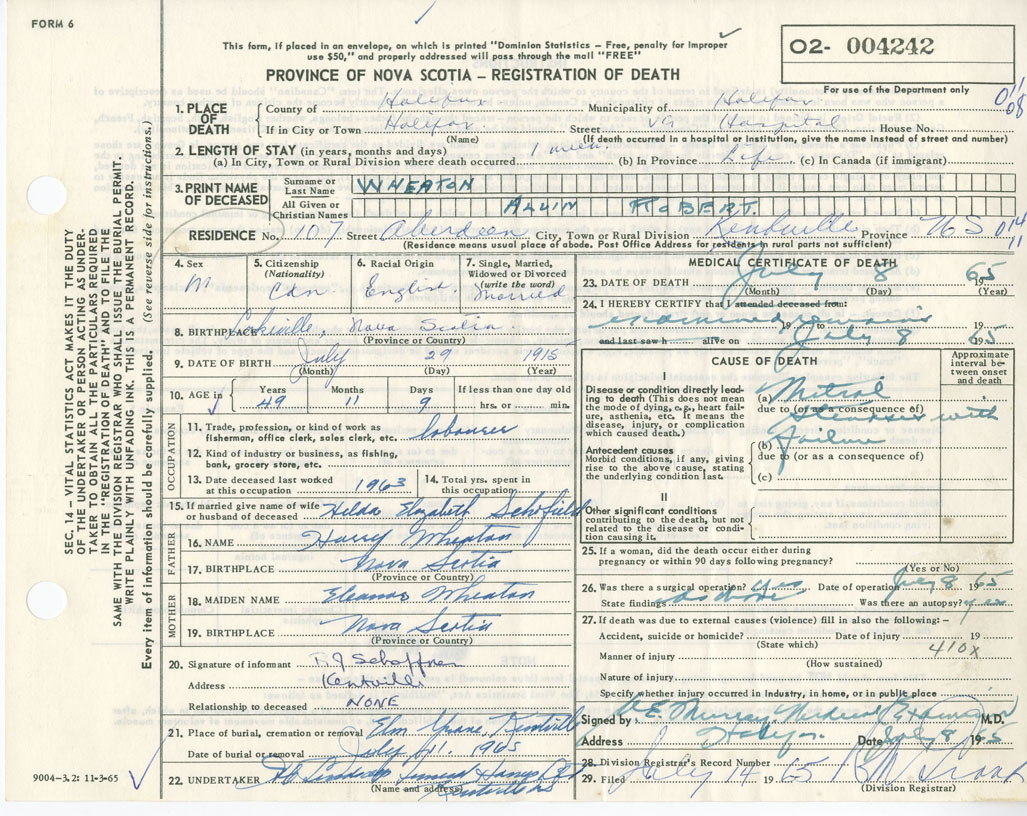 FORM 6
This form, if placed in an envelope, on which is printed "Dominion Statistics – Free, penalty for improper
use $50," and properly addressed will pass through the mail "FREE"
PROVINCE OF NOVA SCOTIA – REGISTRATION OF DEATH
02- 004242
For use of the Department only
011
08
1. PLACE OF DEATH
County of Halifax Municipality of Halifax
If in City or Town Halifax Street VG Hospital House No.
(Name) (If death occurred in a hospital or institution, give the name instead of street and number)
2. LENGTH OF STAY (in years, months and days)
(a) In City, Town or Rural Division where death occurred 1 (b) In Province Life (c) In Canada (if immigrant)
3. PRINT NAME OF DECEASED
Surname or Last Name WHEATON
All Given or Christian Names ALVIN ROBERT
RESIDENCE No. 107 Street Aberdeen City, Town or Rural Division Kentville Province NS 014
11
(Residence means usual place of abode. Post Office Address for residents in rural parts not sufficient)
4. Sex M
5. Citizenship (Nationality) Cdn
6. Racial Origin English
7. Single, Married, Widowed or Divorced (write the word) Married
8. BIRTHPLACE Nova Scotia
(Province or Country)
9. DATE OF BIRTH July 29 1915
(Month) (Day) (Year)
10. AGE in Years 49 Months 11 Days 9 If less than one day old hrs. or min.
OCCUPATION
11. Trade, profession, or kind of work as fisherman, office clerk, sales clerk, etc. labourer
12. Kind of industry or business, as fishing, bank, grocery store, etc.
13. Date deceased last worked at this occupation 1963
14. Total yrs. spent in this occupation
15. If married give name of wife or husband of deceased Hilda Elizabeth Schofield
FATHER
16. NAME Harry Wheaton
17. BIRTHPLACE Nova Scotia
(Province or Country)
MOTHER
18. MAIDEN NAME Eleanor Wheaton
19. BIRTHPLACE Nova Scotia
(Province or Country)
20. Signature of informant Schaffner
Address Kentville
Relationship to deceased NONE
21. Place of burial, cremation or removal Elm Grove, Kentville
Date of burial or removal July 11. 1965
22. UNDERTAKER
(Name and address) Kentville NS
9004-3.2: 11-3-65
MEDICAL CERTIFICATE OF DEATH
23. DATE OF DEATH July 8 1965
(Month) (Day) (Year)
24. I HEREBY CERTIFY that I attended deceased from:
examined remains
19 to July 8
and last saw h alive on 1965
CAUSE OF DEATH
Approximate interval between onset and death
I
Disease or condition directly leading to death (This does not mean the mode of dying, e.g., heart failure, asthenia, etc. It means the disease, injury, or complication which caused death.)
(a) Mitral
due to (or as a consequence of)
disease with
(b) failure
due to (or as a consequence of)
(c)
Antecedent causes
Morbid conditions, if any, giving rise to the above cause, stating the underlying condition last.
II
Other significant conditions
contributing to the death, but not related to the disease or condition causing it.
25. If a woman, did the death occur either during pregnancy or within 90 days following pregnancy?
(Yes or No)
26. Was there a surgical operation? yes Date of operation July 8 1965
State findings as above Was there an autopsy? yes
27. If death was due to external causes (violence) fill in also the following: –
Accident, suicide or homicide? Date of injury 19
(State which)
410X
Manner of injury
(How sustained)
Nature of injury
Specify whether injury occurred in industry, in home, or in public place
Signed by Murray, Medical Examiner M.D.
Address Halifax Date July 8 1965
28. Division Registrar's Record Number
29. Filed July 14 1965
(Division Registrar)
SEC. 14 – VITAL STATISTICS ACT MAKES IT THE DUTY
OF THE UNDERTAKER OR PERSON ACTING AS UNDER-
TAKER TO OBTAIN ALL THE PARTICULARS REQUIRED
IN THE "REGISTRATION OF DEATH" AND TO FILE THE
SAME WITH THE DIVISION REGISTRAR WHO SHALL ISSUE THE BURIAL PERMIT.
WRITE PLAINLY WITH UNFADING INK. THIS IS A PERMANENT RECORD.
Every item of information should be carefully supplied. (See reverse side for instructions.)